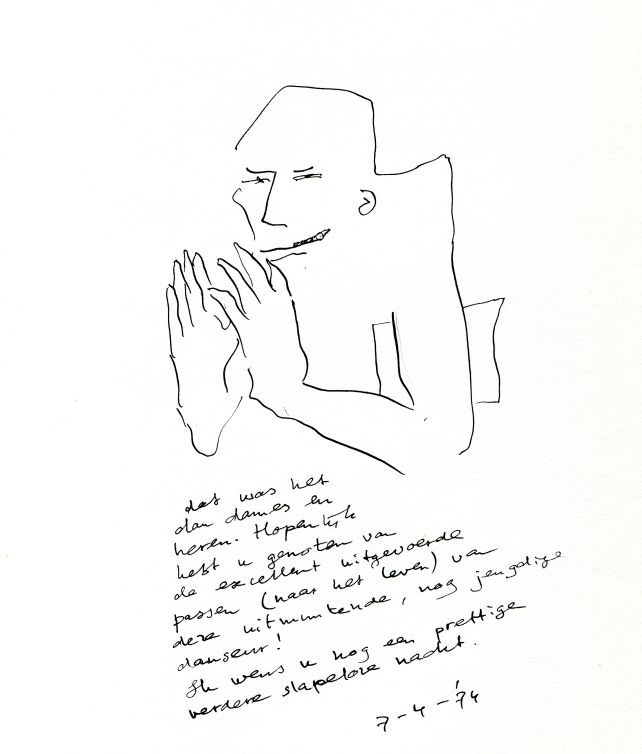 dat was het
dan dames en
heren. Hopenlijk
hebt u genoten van
de excellent uitgevoerde
passen (naar het leven) van
deze uitmuntende, nog jeugdige
danseur!
Ik wens u nog een prettige
verdere slapeloze nacht.
7-4-'74